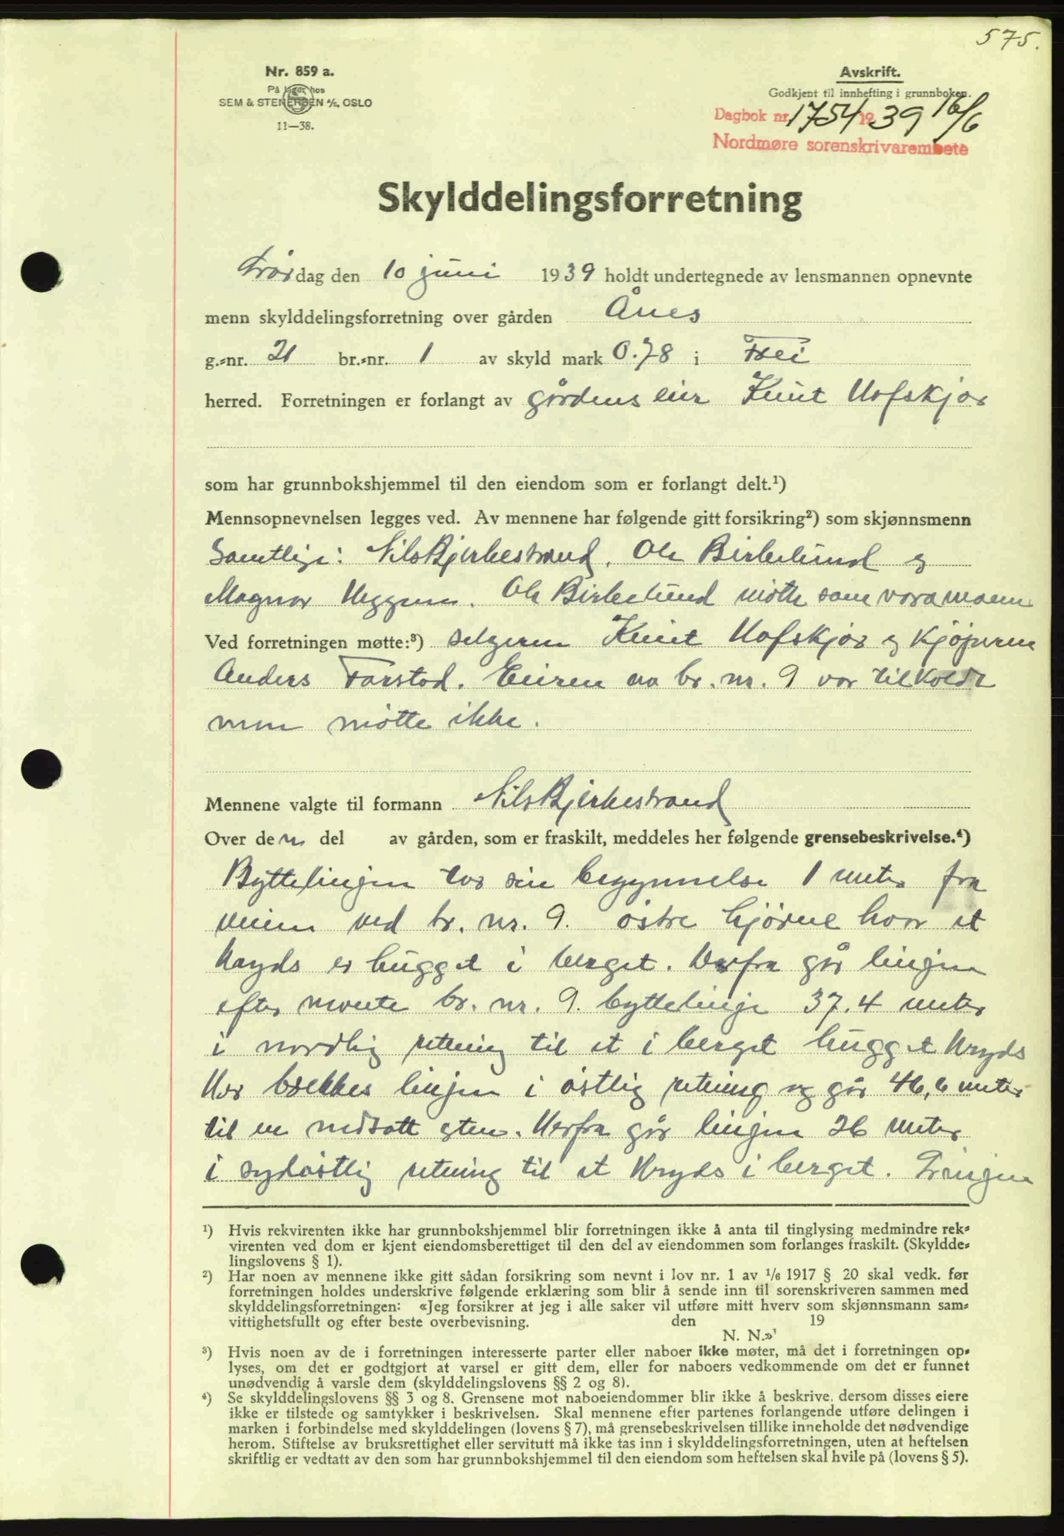 575.
Nr. 859 a.
På lager hos
SEM & STENERSEN A/S, OSLO
11—38.
Avskrift.
Godkjent til innhefting i grunnboken.
Dagbok nr. 1754 1939 16/6
Nordmøre sorenskrivarembete
Skylddelingsforretning
dag den 10 juni 1939 holdt undertegnede av lensmannen opnevnte
menn skylddelingsforretning over gården Ånes
g.-nr. 21 br.-nr. 1 av skyld mark 0.78 i Frei
herred. Forretningen er forlangt av gårdens eier Knut Hofskjør
som har grunnbokshjemmel til den eiendom som er forlangt delt.¹)
Mennsopnevnelsen legges ved. Av mennene har følgende gitt forsikring²) som skjønnsmenn
Samtlige: Nils Bjerkestrand, Ole Birkelund og
Magnar Heggem. Ole Birkelund møtte som varamann
Ved forretningen møtte:³) selgeren Knut Hofskjør og kjøperen
Anders Farstad. Eieren av br. nr. 9 var tilkaldt
men møtte ikke.
Mennene valgte til formann Nils Bjerkestrand
Over den del av gården, som er fraskilt, meddeles her følgende grensebeskrivelse.⁴)
Byttelinjen tar sin begynnelse 1 meter fra
veien ved br. nr. 9. østre hjørne hvor et
kryds er hugget i berget. Herfra går linjen
efter br. nr. 9. byttelinje 37.4 meter
i nordlig retning til et i berget hugget kryds
Her brekkes linjen i østlig retning og går 46,6 meter
til en nedsatt sten. Herfra går linjen 26 meter
i sydøstlig retning til et kryds i berget. Linjen
¹) Hvis rekvirenten ikke har grunnbokshjemmel blir forretningen ikke å anta til tinglysing medmindre rek-
virenten ved dom er kjent eiendomsberettiget til den del av eiendommen som forlanges fraskilt. (Skyldde-
lingslovens § 1).
²) Har noen av mennene ikke gitt sådan forsikring som nevnt i lov nr. 1 av ¹/₆ 1917 § 20 skal vedk. før
forretningen holdes underskrive følgende erklæring som blir å sende inn til sorenskriveren sammen med
skylddelingsforretningen: «Jeg forsikrer at jeg i alle saker vil utføre mitt hverv som skjønnsmann sam-
vittighetsfullt og efter beste overbevisning. den 19
N. N.»
³) Hvis noen av de i forretningen interesserte parter eller naboer ikke møter, må det i forretningen op-
lyses, om det er godtgjort at varsel er gitt dem, eller for naboers vedkommende om det er funnet
unødvendig å varsle dem (skylddelingslovens §§ 2 og 8).
⁴) Se skylddelingslovens §§ 3 og 8. Grensene mot naboeiendommer blir ikke å beskrive, dersom disses eiere
ikke er tilstede og samtykker i beskrivelsen. Skal mennene efter partenes forlangende utføre delingen i
marken i forbindelse med skylddelingen (lovens § 7), må grensebeskrivelsen tillike inneholde det nødvendige
herom. Stiftelse av bruksrettighet eller servitutt må ikke tas inn i skylddelingsforretningen, uten at heftelsen
skriftlig er vedtatt av den som har grunnbokshjemmel til den eiendom som heftelsen skal hvile på (lovens § 5).